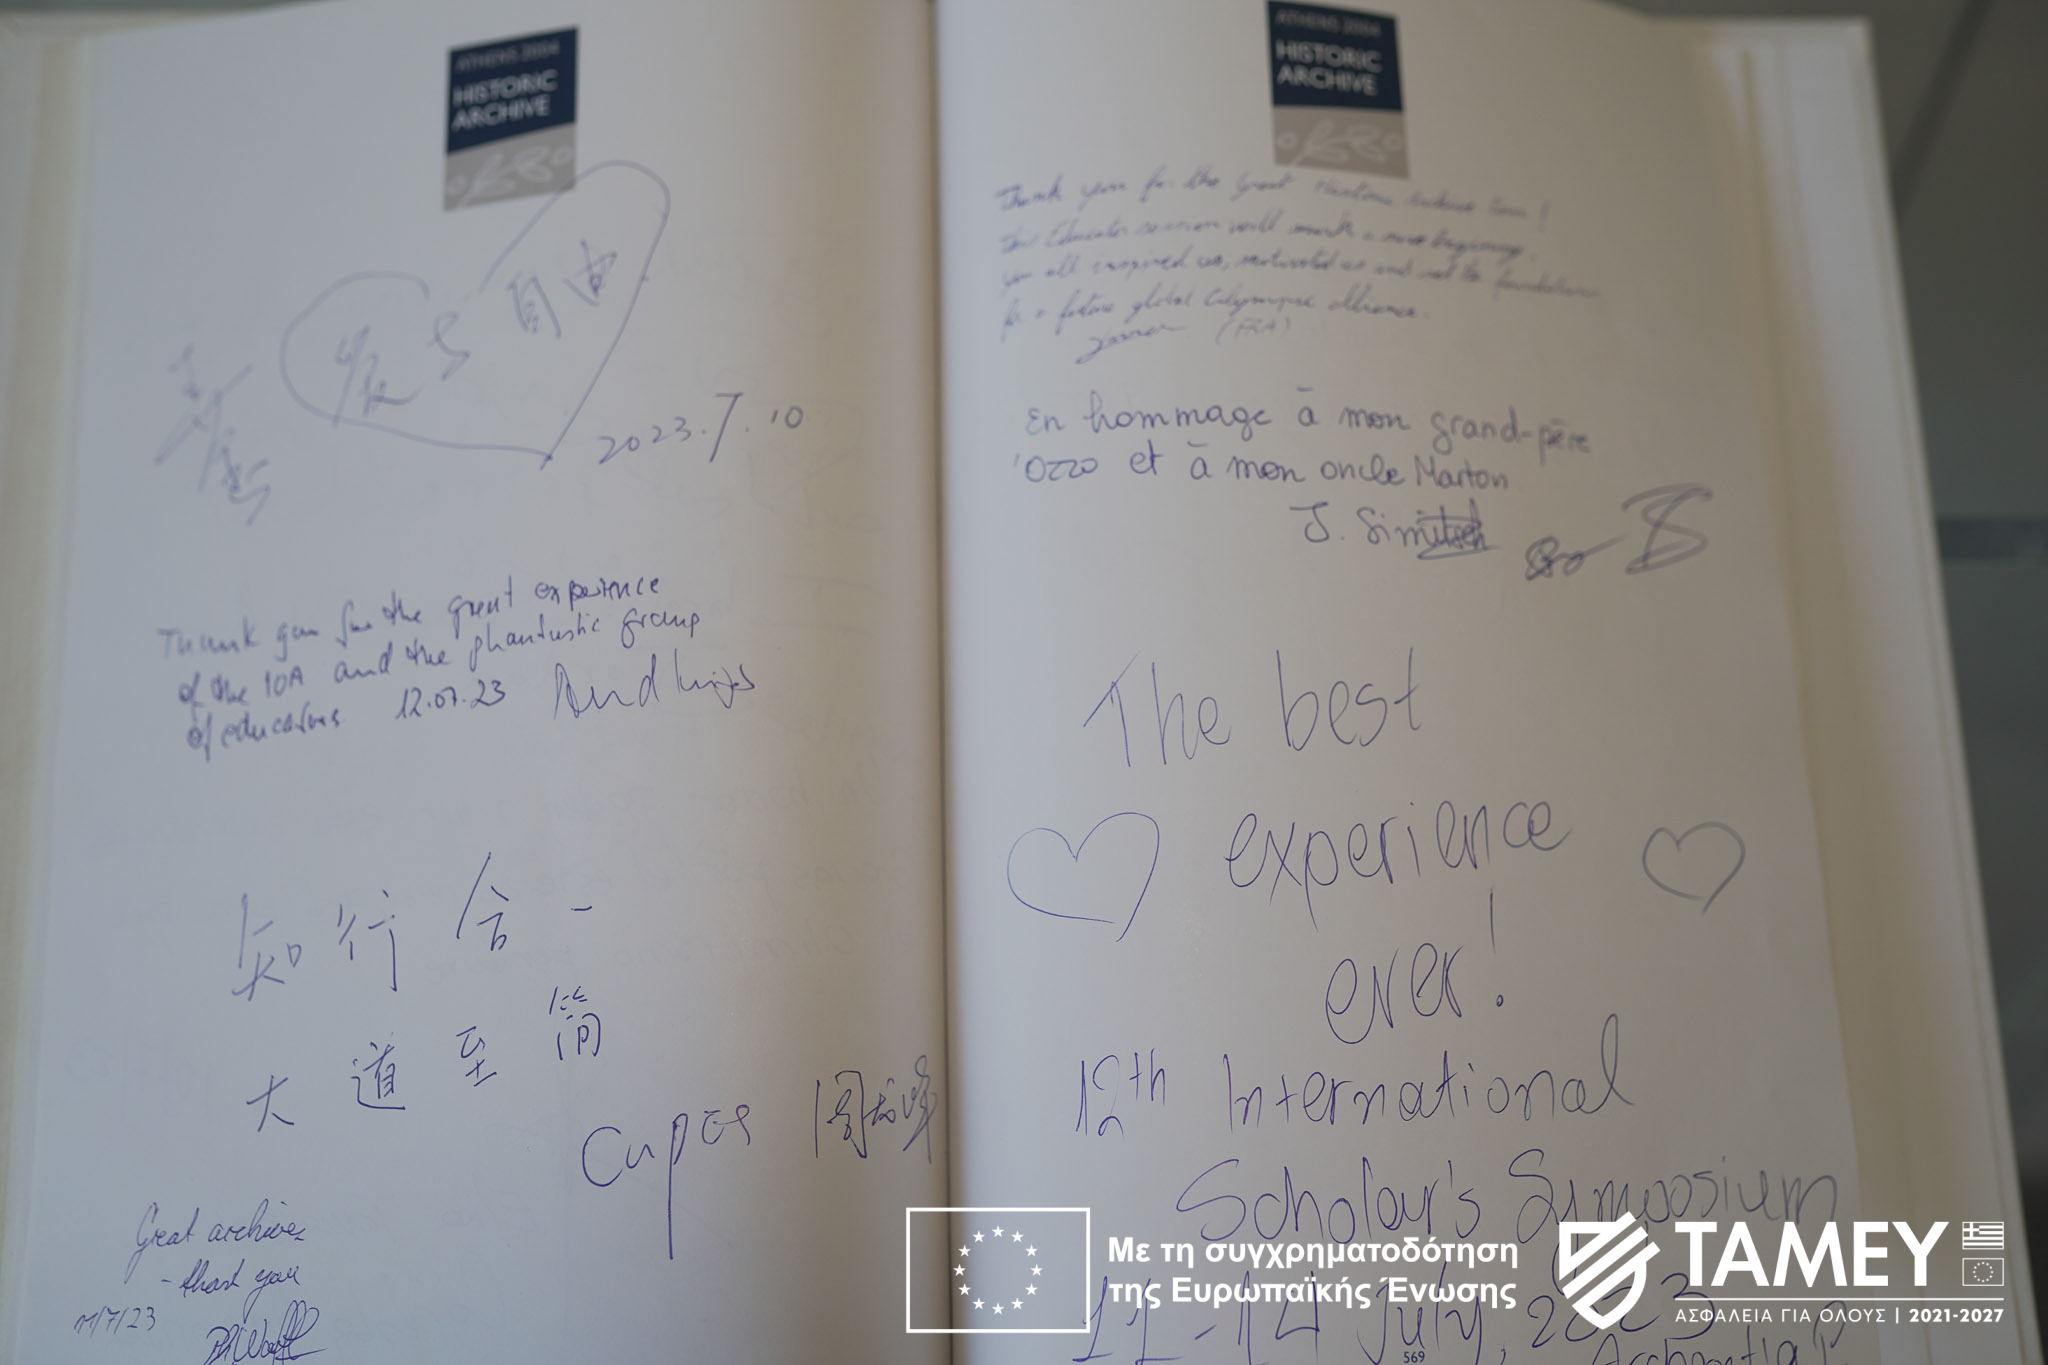 ATHENS 2004
HISTORIC
ARCHIVE
自由
2023.7.10
Thank you for the great experience
of the IOA and the phantastic group
of educators 12.07.23
知行合一
大道至简
周
Great archive
- thank you
11/7/23
ATHENS 2004
HISTORIC
ARCHIVE
Thank you for the Great Historic Archive Tour!
This Educator session will mark a new beginning.
You all inspired us, motivated us and set the foundations
for a future global Olympic alliance.
(FRA)
En hommage à mon grand-père
Ozzo et à mon oncle Marton
J. Simitsch
The best
experience
ever!
12th International
Scholar's Symposium
11-14 July, 2023
569
Με τη συγχρηματοδότηση
της Ευρωπαϊκής Ένωσης
TAMEY
ΑΣΦΑΛΕΙΑ ΓΙΑ ΟΛΟΥΣ | 2021-2027